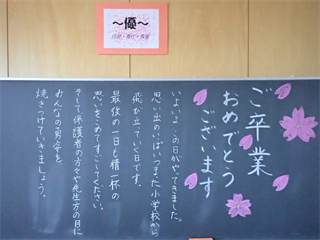 ～優～
ご卒業
おめでとう
ございます
いよいよ、この日がやってきました。
思い出のいっぱいつまった小学校から
飛び立っていく日です。
最後の一日も精一杯の
思いをこめてすごしてください。
そして、保護者の方々や先生方の目に
みんなの勇姿を
焼きつけていきましょう。